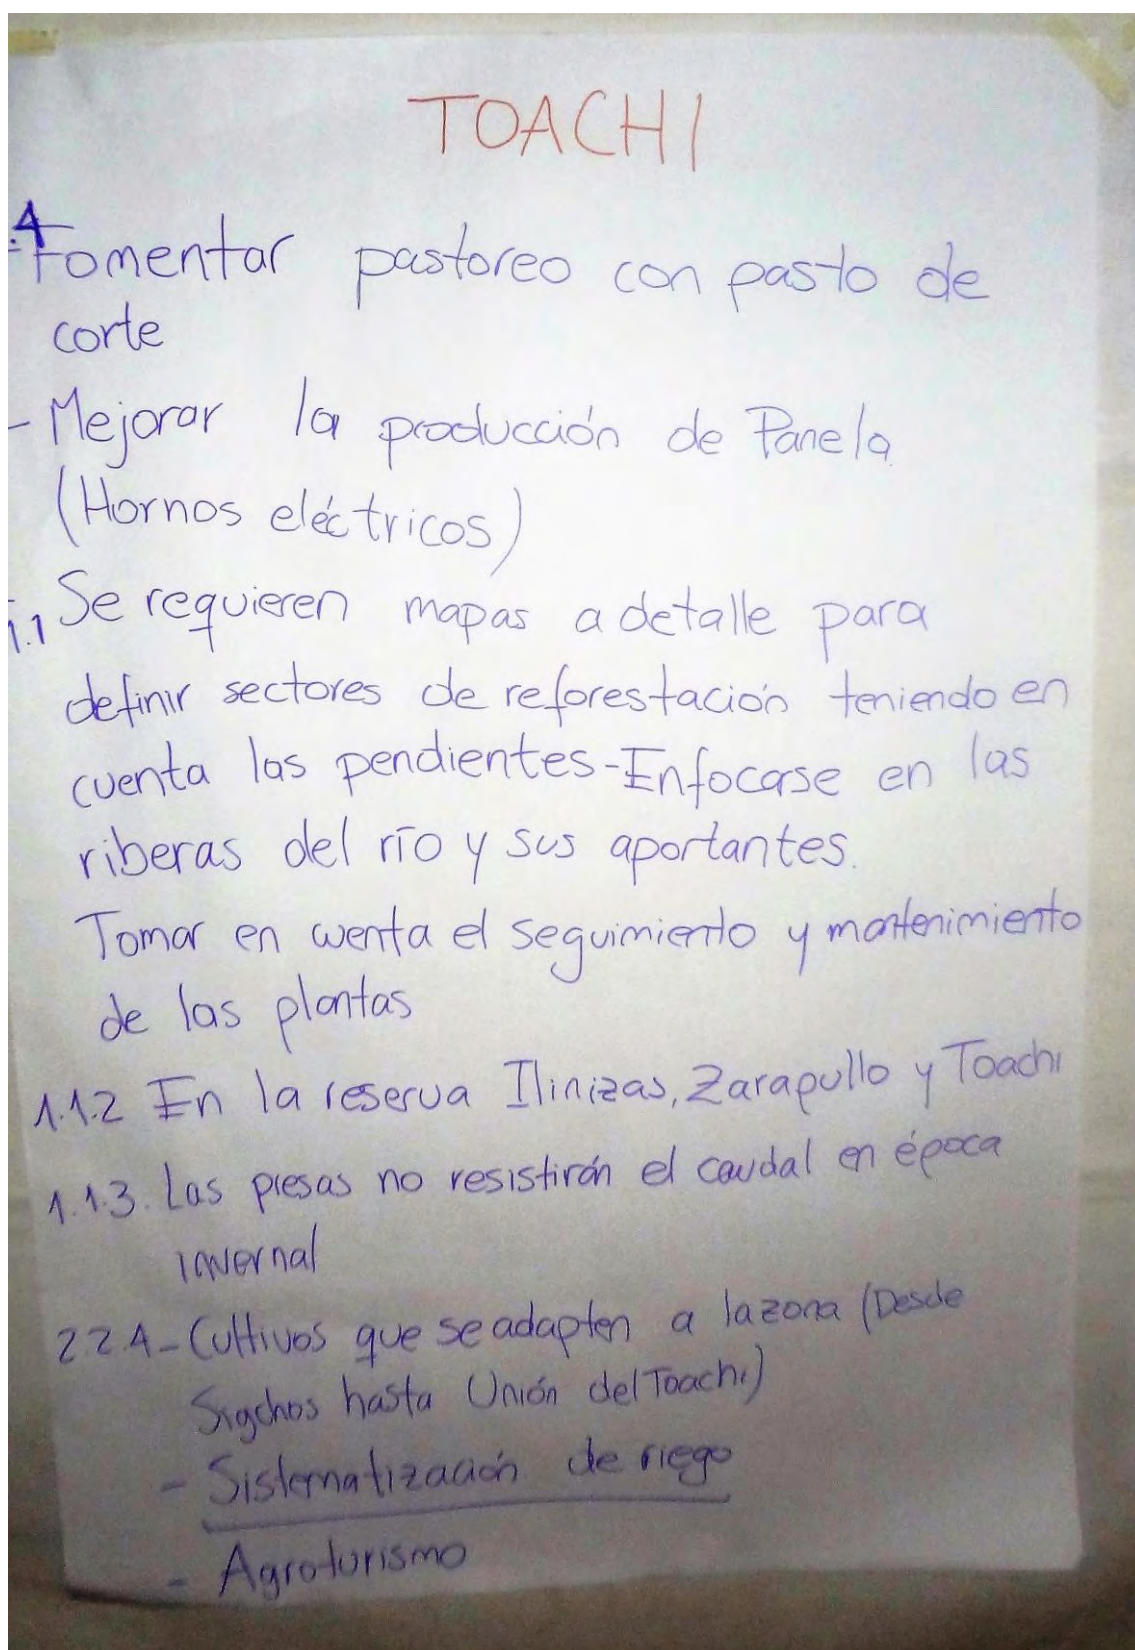 TOACHI
.4
- Fomentar pastoreo con pasto de
corte
- Mejorar la producción de Panela
(Hornos eléctricos)
1.1 Se requieren mapas a detalle para
definir sectores de reforestación teniendo en
cuenta las pendientes - Enfocase en las
riberas del río y sus aportantes.
Tomar en cuenta el seguimiento y mantenimiento
de las plantas
1.1.2 En la reserva Ilinizas, Zarapullo y Toachi
1.1.3. Las presas no resistirán el caudal en época
invernal
2.2.4 - Cultivos que se adapten a la zona (Desde
Sigchos hasta Unión del Toachi)
- Sistematización de riego
- Agroturismo